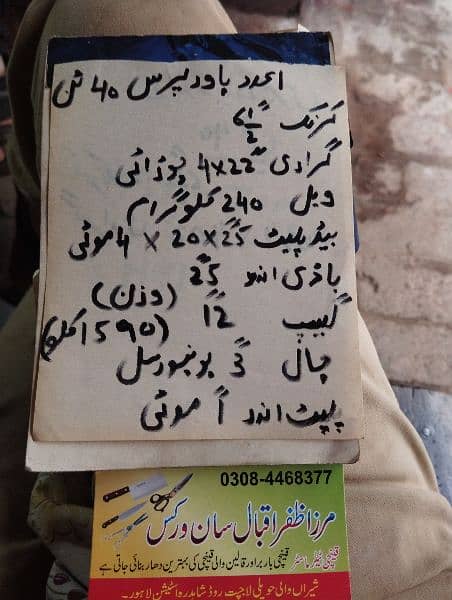 1عدد پاور پریس 40 ٹن
کرنک 6 1/2"
گراری 22"x4 چوڑائی
ویل 240 کلوگرام
بیڈ پلیٹ 25"x20 x 4 موٹی
باڈی اندر 25"
گیپ 12" (وزن)
چال 3" یونیورسل (1590 کلو)
پلیٹ اندر 1" موٹی
0308-4468377
مرزا ظفر اقبال سان ورکس
قینچی ٹیلر ماسٹر قینچی باربر اور قالین والی قینچی کی بہترین دھار بنائی جاتی ہے
شیراں والی حویلی لاجپت روڈ شاہدرہ اسٹیشن لاہور۔